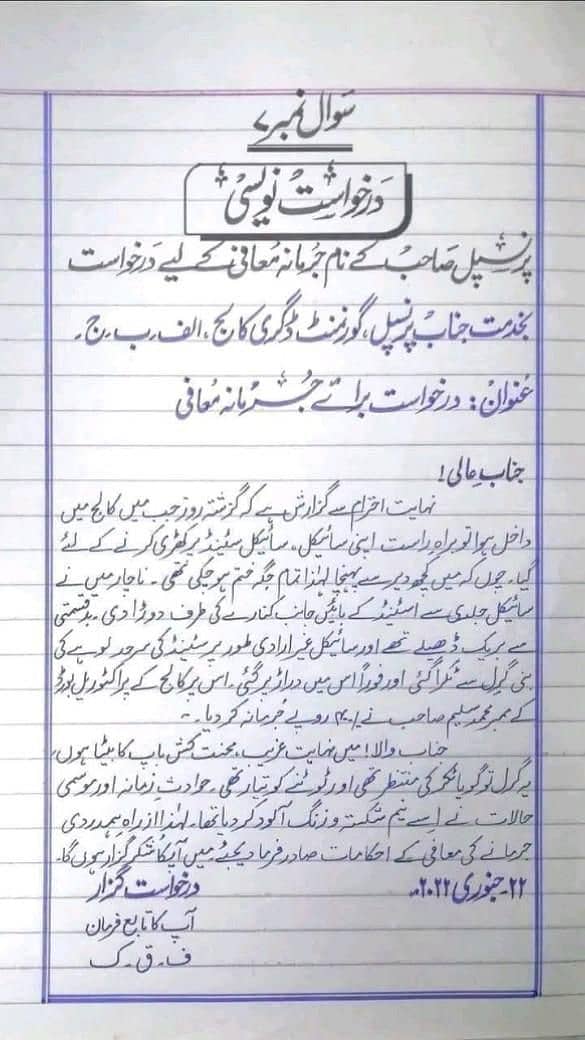 سوال نمبر ۷
درخواست نویسی
پرنسپل صاحب کے نام جرمانہ معافی کے لیے درخواست
بخدمت جناب پرنسپل، گورنمنٹ ڈگری کالج، الف۔ ب۔ ج۔
عنوان: درخواست برائے جرمانہ معافی
جناب عالی!
نہایت احترام سے گزارش ہے کہ گزشتہ روز جب میں کالج میں
داخل ہوا تو براہ راست اپنی سائیکل، سائیکل سٹینڈ پر کھڑی کرنے کے لئے
گیا۔ چوں کہ میں کچھ دیر سے پہنچا لہٰذا تمام جگہ ختم ہو چکی تھی۔ ناچار میں نے
سائیکل جلدی سے اسٹینڈ کے بائیں جانب کنارے کی طرف دوڑا دی۔ بدقسمتی
سے بریک ڈھیلے تھے اور سائیکل غیر ارادی طور پر سٹینڈ کی سرحد لوہے کی
بنی گرِل سے ٹکرا گئی اور فوراً اس میں دراڑ پر گئی۔ اس پر کالج کے پراکٹوریل بورڈ
کے ممبر محمد سلیم صاحب نے روپے جُرمانہ کر دیا۔
جناب والا! میں نہایت غریب، محنت کش باپ کا بیٹا ہوں،
یہ گرل تو گویا ٹکر کی منتظر تھی اور ٹوٹنے کو تیار تھی۔ حوادثِ زمانہ اور موسمی
حالات نے اِسے نیم شکستہ و زنگ آلود کر دیا تھا۔ لہٰذا از راہِ ہمدردی
جرمانے کی معافی کے احکامات صادر فرما دیجئے میں آپکا شکر گزار ہوں گا۔
۲۲۔ جنوری ۲۰۲۲ء درخواست گزار
آپ کا تابع فرمان
ف۔ ق۔ ک